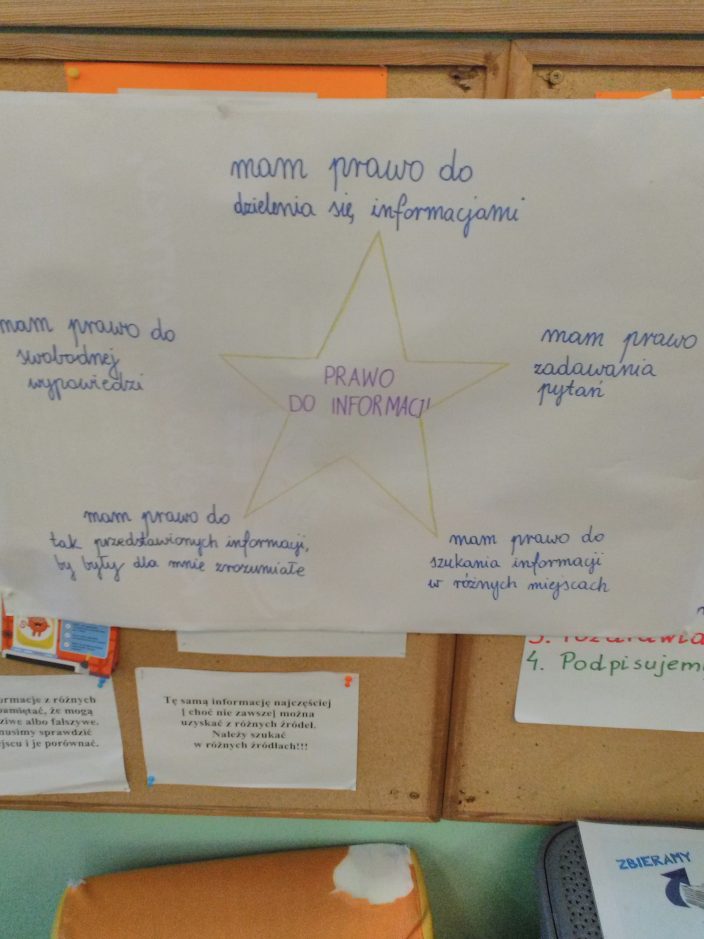 mam prawo do
dzielenia się informacjami
mam prawo do
swobodnej
wypowiedzi
mam prawo
zadawania
pytań
PRAWO
DO INFORMACJI
mam prawo do
tak przedstawionych informacji,
by były dla mnie zrozumiałe
mam prawo do
szukania informacji
w różnych miejscach
4. Podpisujem
z różnych
że mogą
albo fałszywe.
musimy sprawdzić
i je porównać.
Tę samą informację najczęściej
[ choć nie zawsze] można
uzyskać z różnych źródeł.
Należy szukać
w różnych źródłach!!!
ZBIERAMY